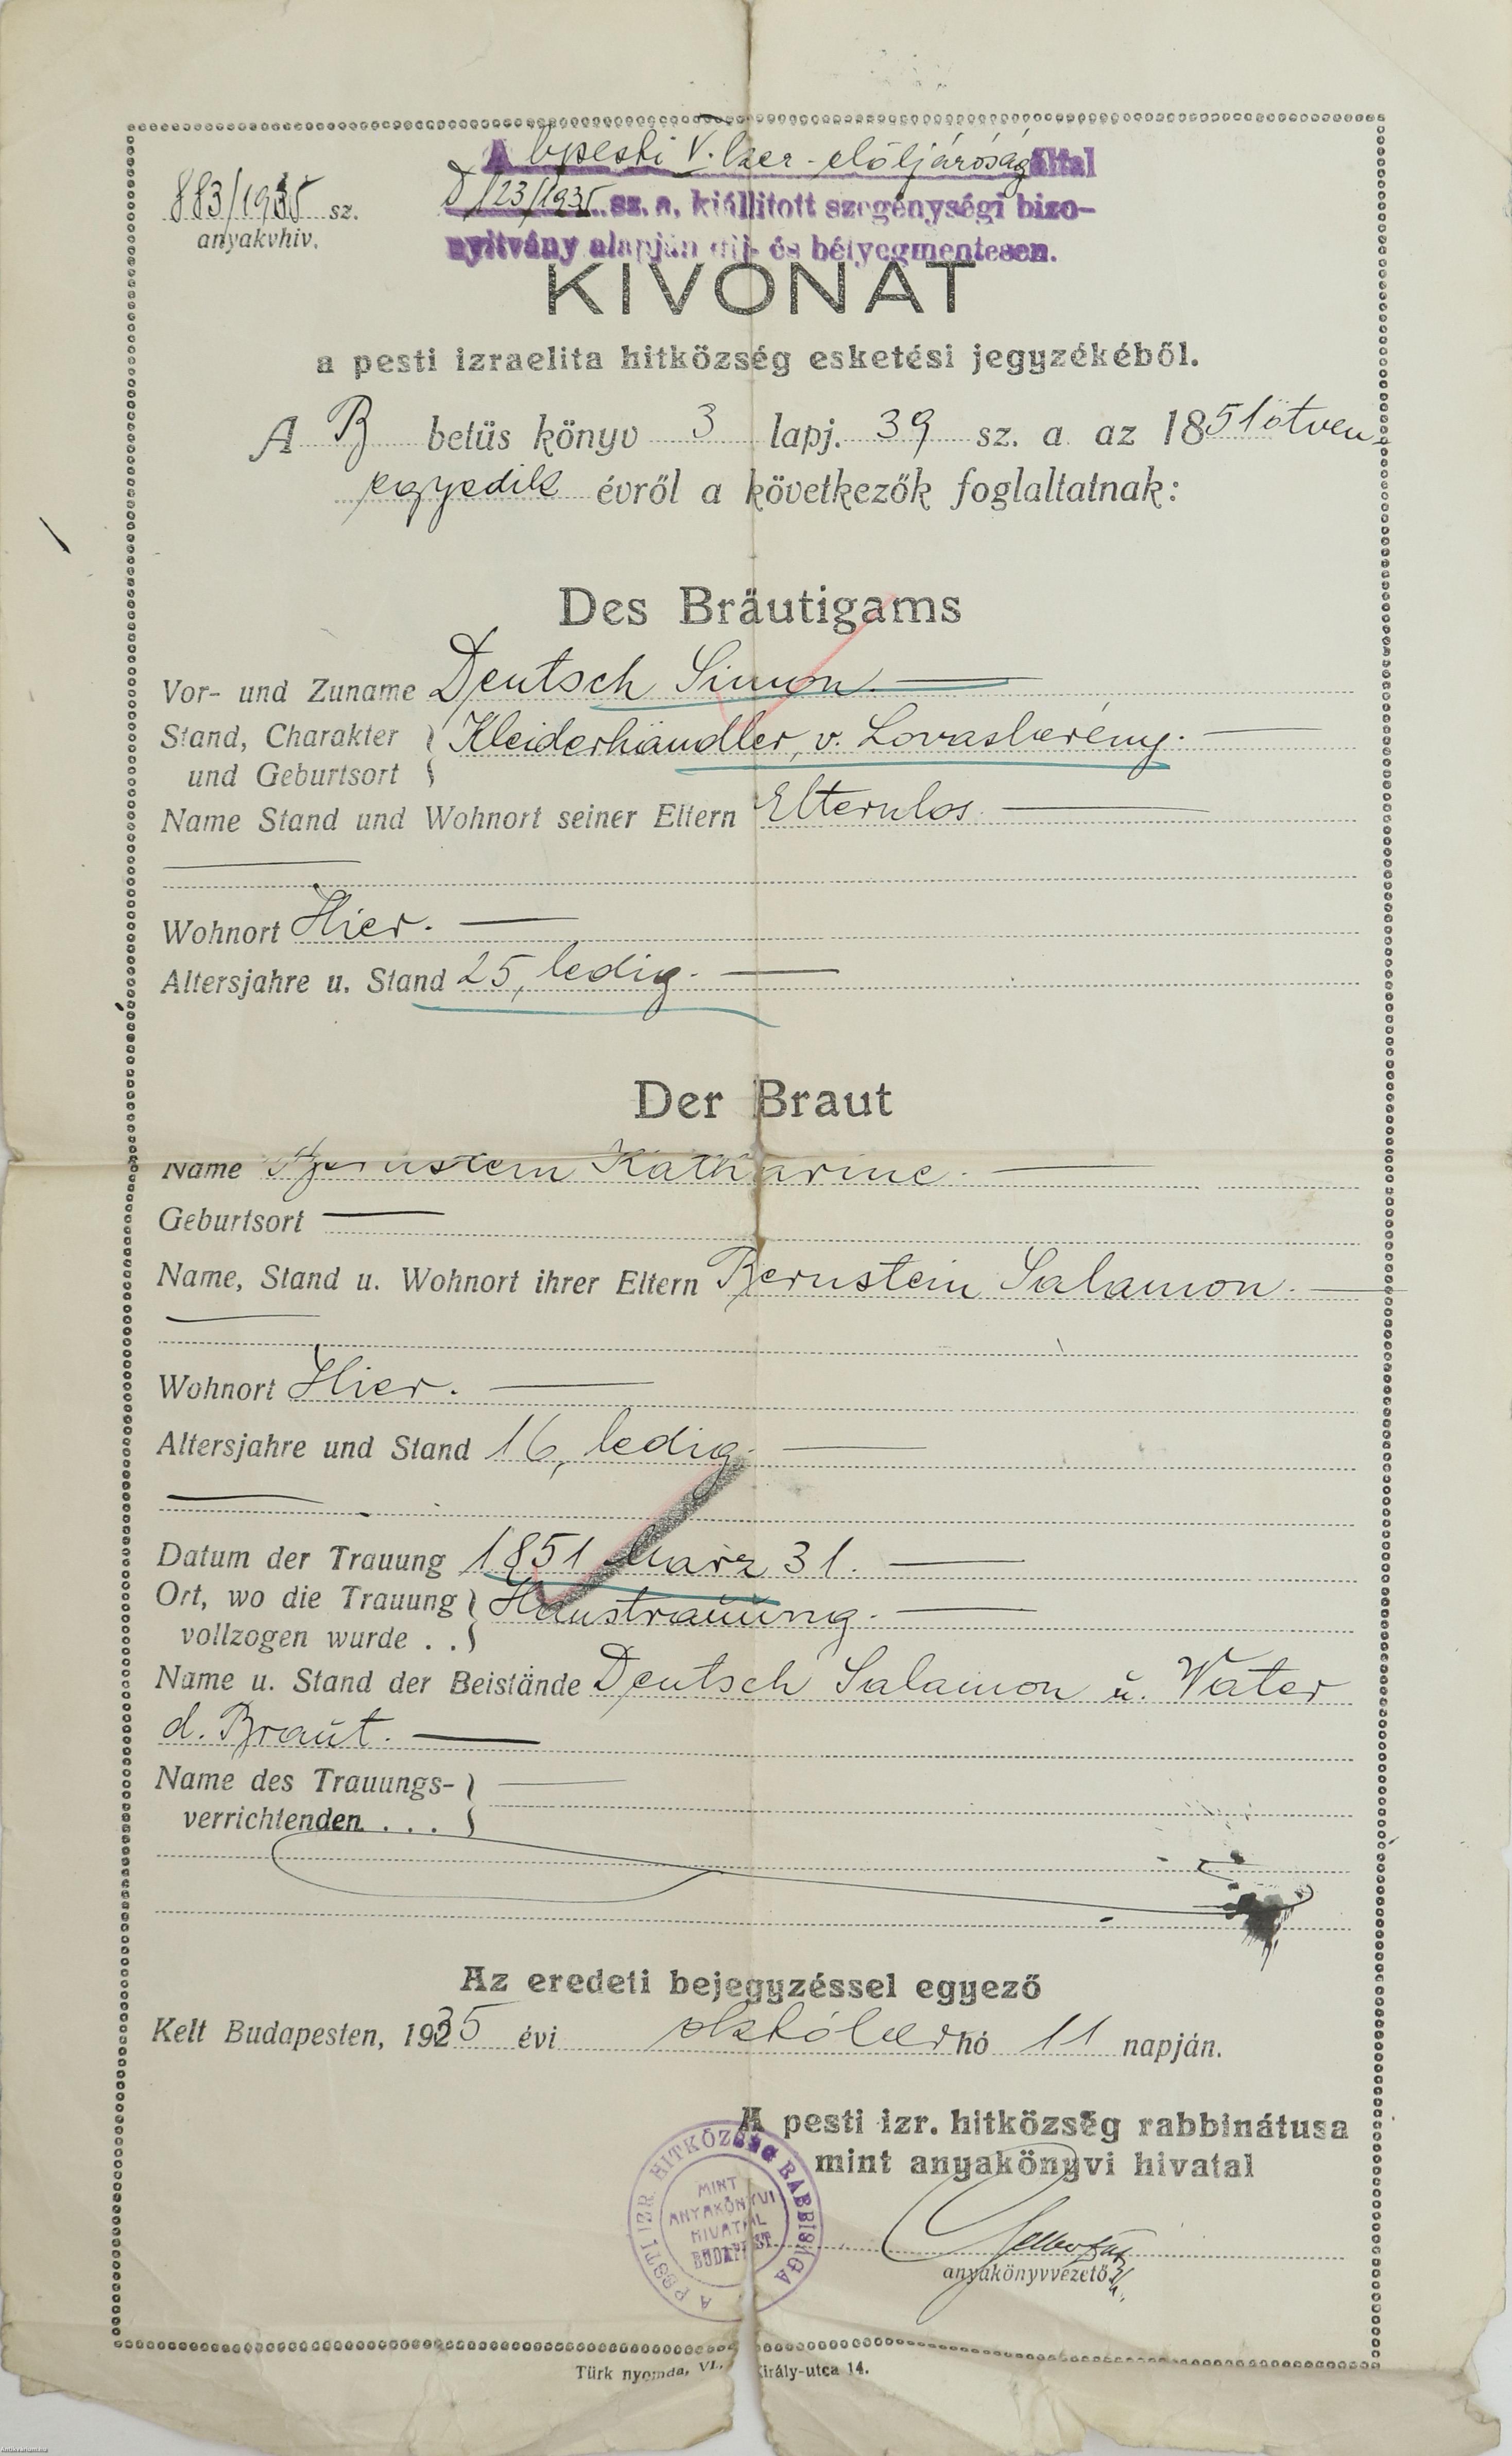 A bpesti V. ker. elöljáróság által
883/1935 sz.
anyakvhiv.
D/23/1935 sz. a. kiállitott szegénységi bizo-
nyitvány alapján dij- és bélyegmentesen.
KIVONAT
a pesti izraelita hitközség esketési jegyzékéből.
A B betüs könyv 3 lapj. 39 sz. a az 1851 ötven-
egyedik évről a következők foglaltatnak:
Des Bräutigams
Vor- und Zuname Deutsch Simon.
Stand, Charakter und Geburtsort } Kleiderhändler, v. Lovasberény.
Name Stand und Wohnort seiner Eltern Elternlos.
Wohnort Hier.
Altersjahre u. Stand 25, ledig.
Der Braut
Name Bernstein Katharine.
Geburtsort
Name, Stand u. Wohnort ihrer Eltern Bernstein Salamon.
Wohnort Hier.
Altersjahre und Stand 16, ledig.
Datum der Trauung 1851 März 31.
Ort, wo die Trauung vollzogen wurde . . } Haustrauung.
Name u. Stand der Beistände Deutsch Salamon u. Vater
d. Braut.
Name des Trauungs-
verrichtenden . . . }
Az eredeti bejegyzéssel egyező
Kelt Budapesten, 1935 évi október hó 11 napján.
A pesti izr. hitközség rabbinátusa
mint anyakönyvi hivatal
A PESTI IZR. HITKÖZSÉG RABBISÁGA
MINT
ANYAKÖNYVI
HIVATAL
BUDAPEST.
anyakönyvvezető
Türk nyomda, VI., Király-utca 14.